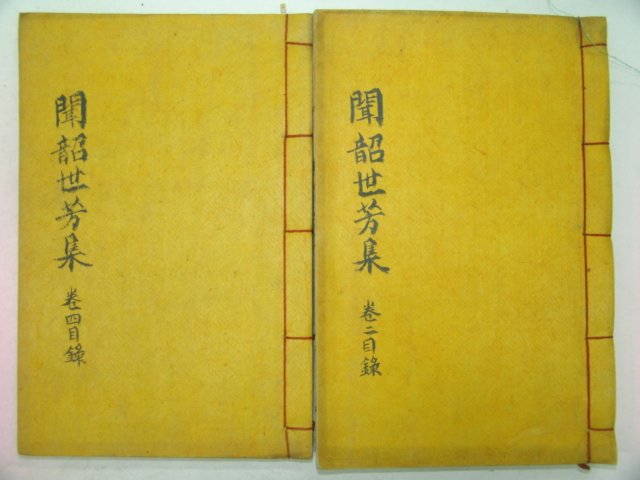 聞韶世芳集
卷二目錄
聞韶世芳集
卷四目錄